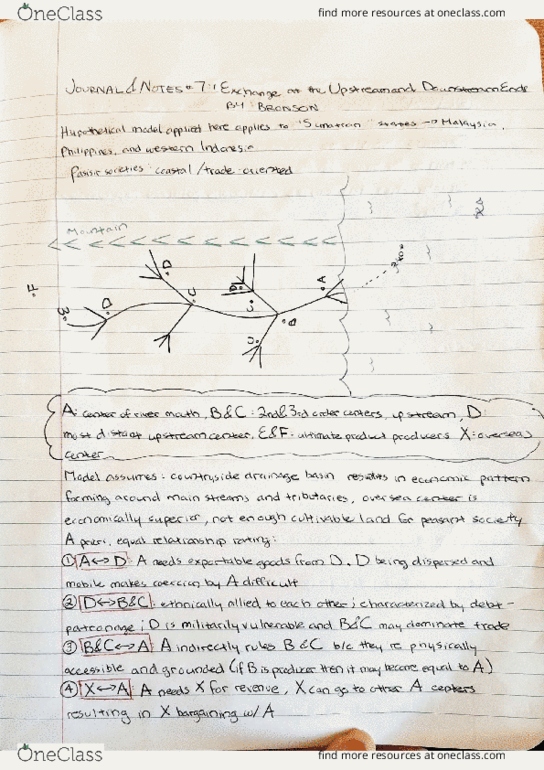 OneClass
find more resources at oneclass.com
JOURNAL & NOTES #7: Exchange at the Upstream and Downstream Ends
BY: BRONSON
Hypothetical model applied here applies to "Sumatran" states → Malaysia,
Philippines, and western Indonesia
societies: coastal / trade-oriented
Mountain
D
C
B
A
X
F
D
C
B
A: center of river mouth, B&C: 2nd & 3rd order centers, upstream, D:
most distant upstream center, E&F: ultimate product producers X: overseas
center
Model assumes: countryside drainage basin results in economic pattern
forming around main streams and tributaries, oversea center is
economically superior, not enough cultivable land for peasant society
A priori, equal relationship rating:
① A↔D: A needs exportable goods from D. D being dispersed and
mobile makes coercion by A difficult
② D↔B&C: ethnically allied to each other; characterized by debt-
patronage; D is militarily vulnerable and B&C may dominate trade
③ B&C↔A: A indirectly rules B&C b/c they're physically
accessible and grounded (if B is producer then it may become equal to A)
④ X↔A: A needs X for revenue, X can go to other A centers
resulting in X bargaining w/ A
OneClass
find more resources at oneclass.com